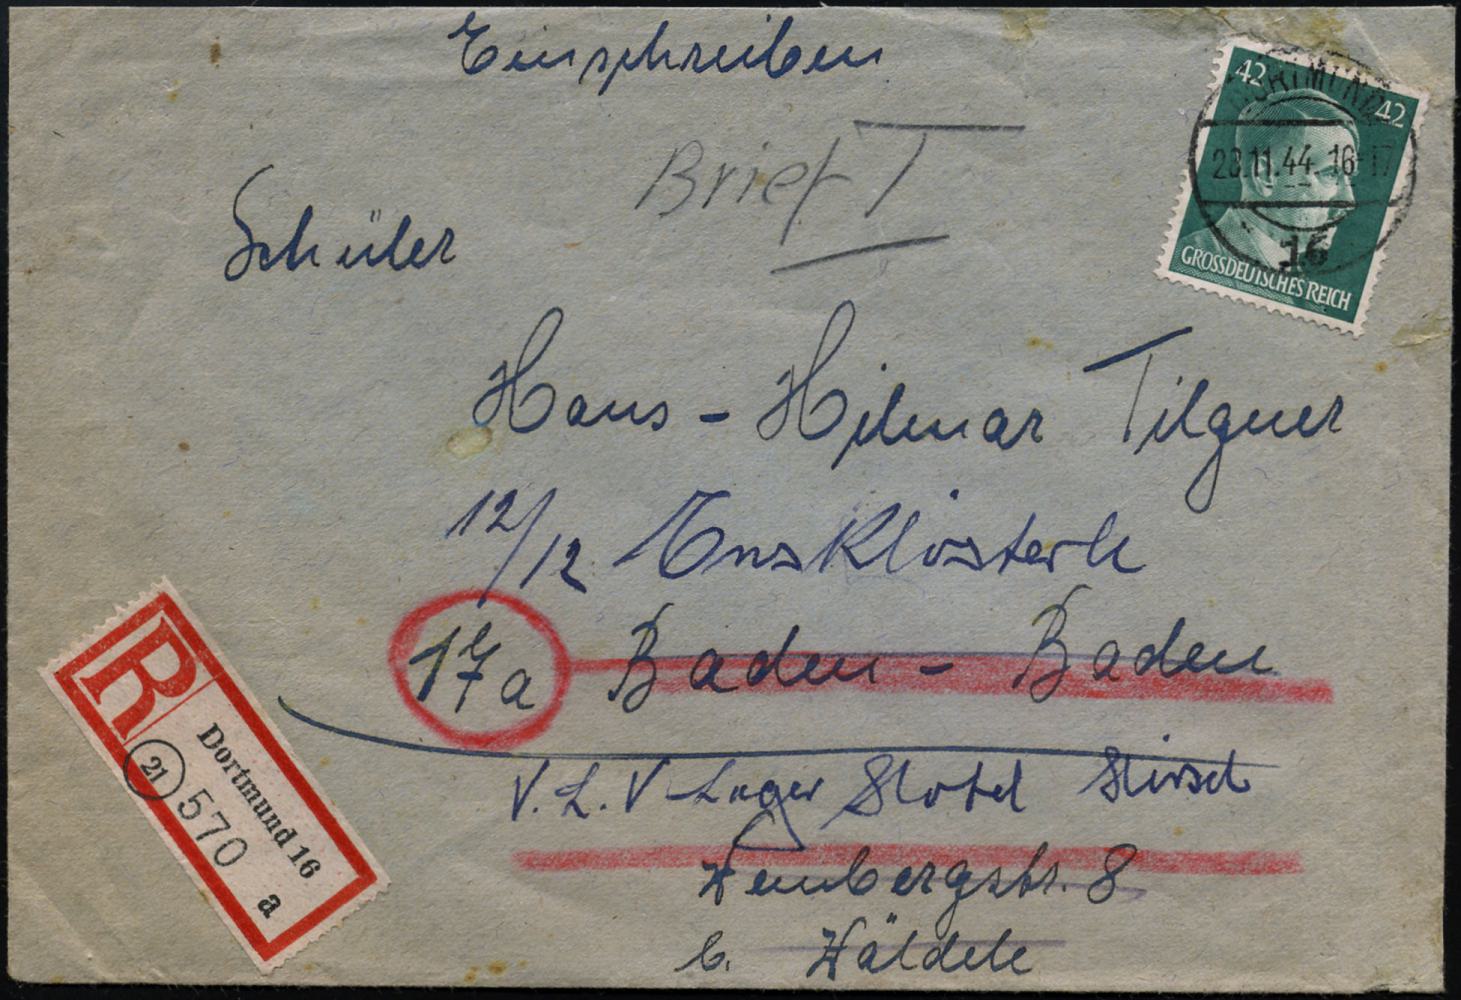 Einschreiben
Brief I
42 42
DORTMUND
28.11.44. 16-17
16
GROSSDEUTSCHES REICH
Schüler
Hans-Hilmar Tilgner
12/12 Enzklösterle
17a Baden-Baden
Lager Hotel Hirsch
Weinbergstr. 8
b. Wäldele
R
Dortmund 16
21
570
a